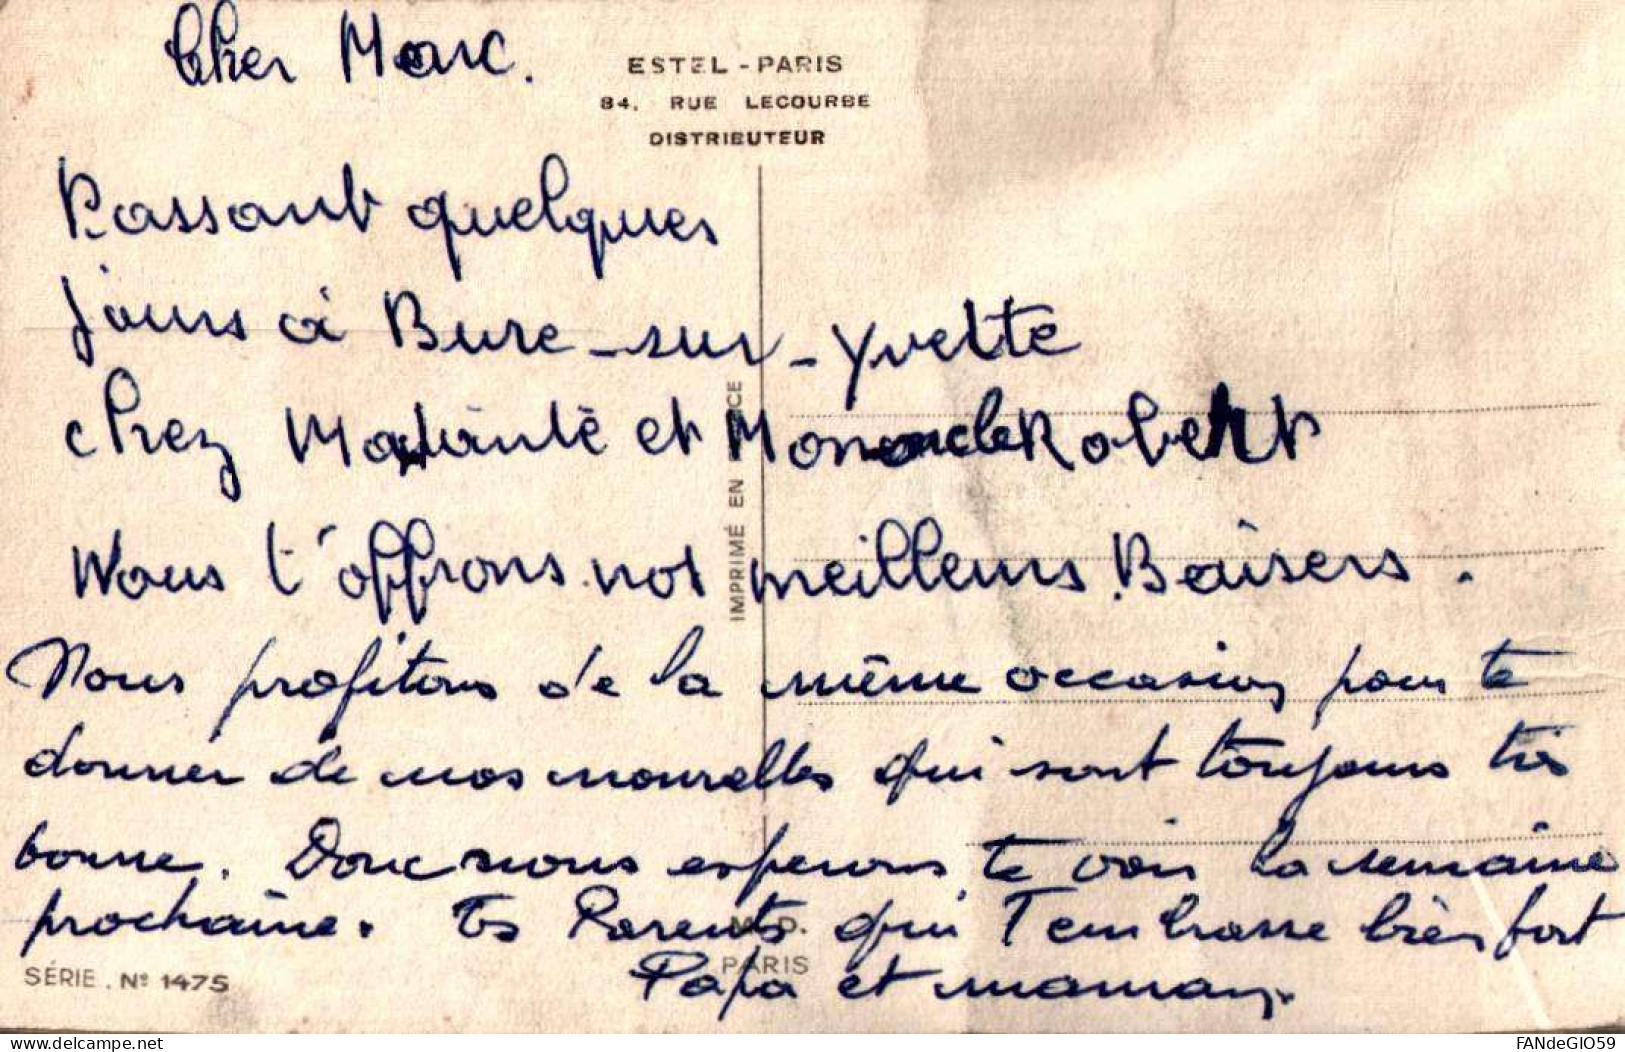 Cher Marc.
ESTEL - PARIS
84, RUE LECOURBE
DISTRIBUTEUR
Passant quelques
jours à Bure-sur-Yvette
chez Matante et Mononcle Robert
Nous t'offrons nos meilleurs Baisers.
IMPRIMÉ EN FRANCE
Nous profitons de la même occasion pour te
donner de nos nouvelles qui sont toujours très
bonne. Donc nous esperons te voir la semaine
prochaine. Tes Parents qui T'embrasse bien fort
Papa et maman.
M.D.
PARIS
SÉRIE. Nº 1475
delcampe.net
FANdeGIO59